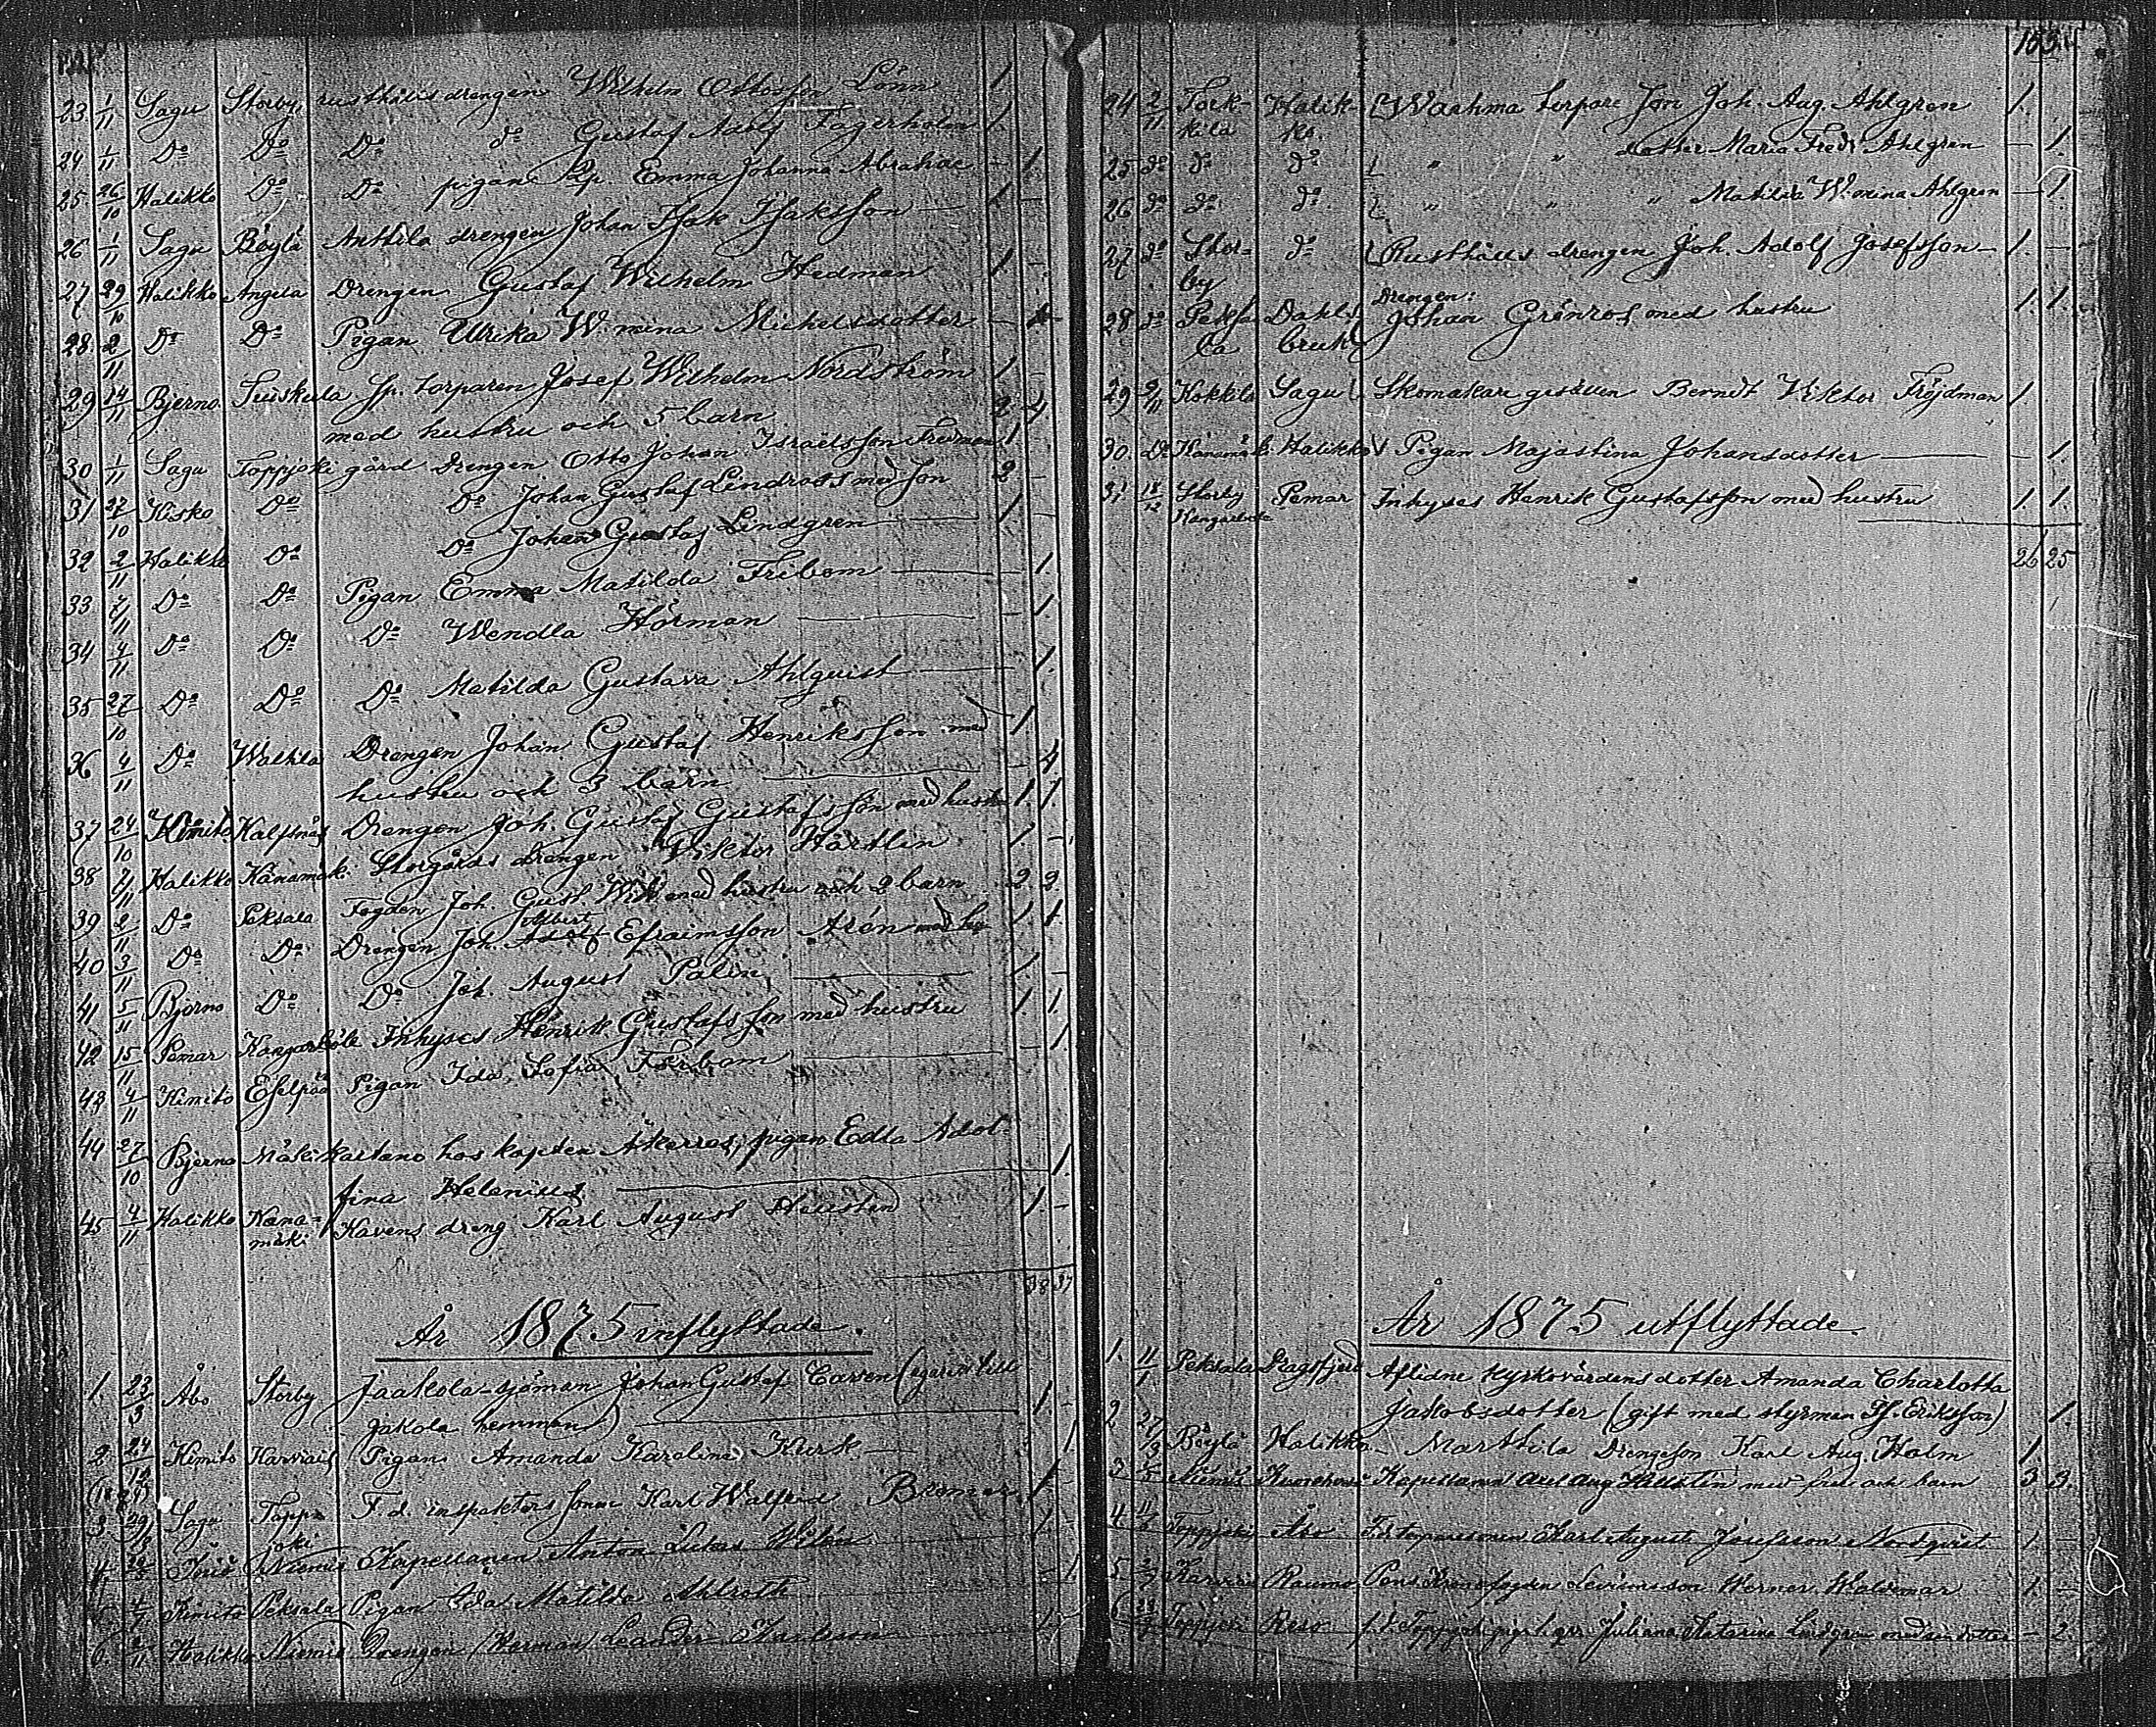 23 1/11 Sagu Storby, rusthålls drengen Wilhelm Ottosson Lönn 1
24 1/11 Do Do Do do Gustaf Adolf Fagerholm 1
25 26/10 Halikko Do Do pigan Emma Johanna Abrahae - 1
26 1/11 Sagu Böylä Anttila drengen Johan Isak Isaksson 1 -
27 29/10 Halikko Angela Drengen Gustaf Wilhelm Hedman 1 -
28 2/11 Do Do Pigan Ulrika W:mina Michelsdotter - 1
29 14/11 Bjerno Tuiskula Sp. torparen Josef Wilhelm Nordström 1 -
med hustru och 5 barn 2 4
30 1/11 Sagu Toppjoki gård Drengen Otto Johan Israelsson Fredman 1
31 27/10 Kisko Do Do Johan Gustaf Lindross med son 2 -
32 2/11 Halikko Do Do Johan Gustaf Lindgren 1 -
33 7/11 Do Do Pigan Emma Matilda Fribom - 1
34 4/11 Do Do Do Wendla Hörman - 1
35 27/10 Do Do Do Matilda Gustava Ahlquist 1
36 4/11 Do Waltila Drengen Johan Gustaf Henriksson med 1
hustru och 3 barn - 4
37 24/10 Kimito Kalfsnäs Drengen Joh. Gustaf Gustafsson med hustru 1. 1.
38 7/11 Halikko Känamäki Storgårds drengen Viktor Hartlin 1. -
39 2/11 Do Peksala Fogden Joh. Gust. Witt med hustru och 2 barn 2 2
40 3/11 Do Do Drengen Joh. Adolf Efraimsson Arén med hu 1 1
41 5/11 Bjerno Do Do Joh. August Palin 1 -
42 15/11 Pemar Kangarböle Inhyses Henrik Gustafsson med hustru 1. 1.
43 4/11 Kimito Eselpää Pigan Ida Sofia Forbom - 1
44 27/10 Bjerno Mälikartano hos kapten Åkerros, pigan Edla Adol-
fina Helenius 1
45 4/11 Halikko Käna-mäki Kavens dreng Karl August Hellsten 1 -
38 37
År 1875 inflyttade.
1. 23/3 Åbo Storby Jaakola-sjöman Johan Gustaf Carven (egaren till
Jakola hemman) 1 -
2 24/10 Kimito Karviais Pigan Amanda Karolina Kurk - 1
3 29/10 Sagu Toppjoki F.d. inspektors sonen Karl Walfrid Bremer 1 -
4. Niemis Kapellanen Anton Lukas Helén 1. -
5 4/7 Kimito Peksala Pigan Eda Matilda Ahlroth - 1
6. 2/11 Halikko Niemis Drengen Herman Leander Karlsson 1 -
163.
24 2/11 Tork-kila Halik-ko. Waahma torpare son Joh. Aug. Ahlgren 1.
25 do do do " " dotter Maria Fred. Ahlgren - 1.
26 do do do " " " Matilda W:mina Ahlgren - 1.
27 do Stor-by do Rusthålls drengen Joh. Adolf Josefsson 1. -
28 do Peksa-la Dahls bruk Drengen: Johan Grönros med hustru 1. 1.
29 2/11 Kokkila Sagu Skomakare gesällen Berndt Viktor Fröjdman 1
30. Do Känamäki Halikko Pigan Majastina Johansdotter - 1.
31 18/12 Storby Kangarböle Pemar Inhyses Henrik Gustafsson med hustru 1. 1.
26 25
År 1875 utflyttade.
1. 11/1 Peksala Dragsfjerd Aflidne kyrkovärdens dotter Amanda Charlotta
Jakobsdotter (gift med styrman Sf. Eriksson) 1.
2 27/3 Böylä Halikko Marttila Drengson Karl Aug. Holm 1.
3 Niemis Kapellanen Axel Aug Hellstén med fru och barn 3 3.
4 Toppjoki Åbo F.d. torparesonen Karl August Josefsson Nordqvist 1 -
5 Karviais Raumo Pens. Kronofogden Werner Waldemar 1 -
6 Toppjoki Reso f.d. Toppjoki Juliana Katarina Lindgren med sin dotter - 2.